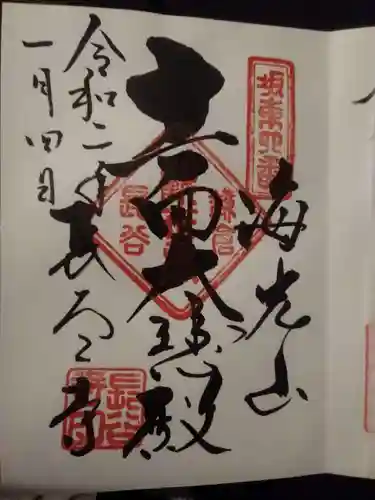 坂東四番
海光山
十一面大悲殿
鎌倉
長谷
令和二年
一月四日
長谷寺